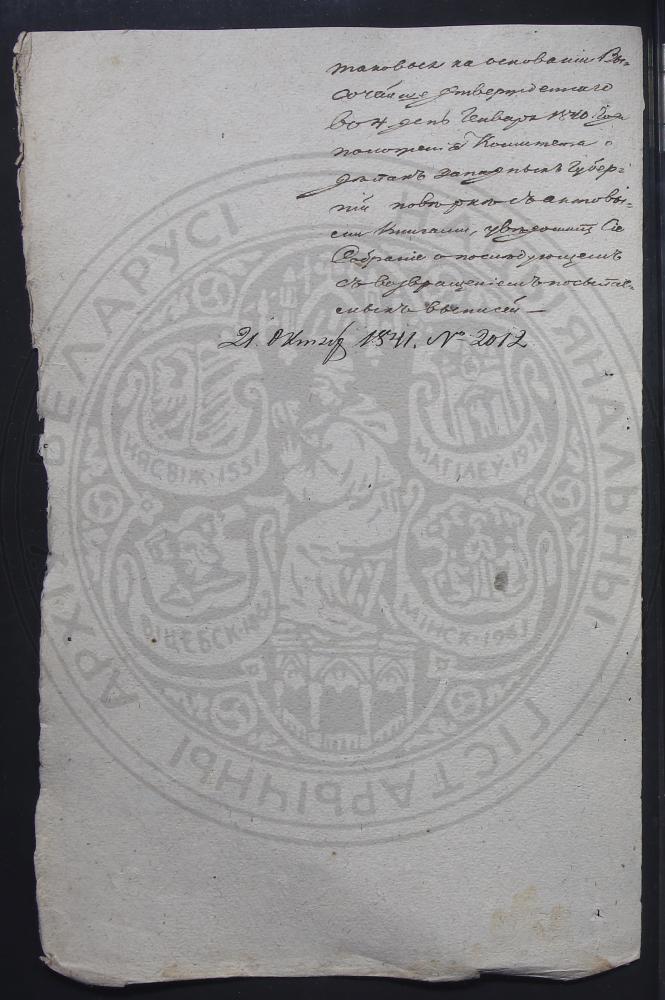 таковыхъ на основаніи Вы-
сочайше утвержденнаго
въ 4 день Генваря 1840 Года
положенія Комитета о
дѣлахъ западныхъ Губер-
ній повѣрки съ актовы-
ми книгами, увѣдомитъ Сіе
Собраніе о послѣдующемъ
съ возвращеніемъ
выписей —
21 Октяб 1841. № 2012
НАЦЫЯНАЛЬНЫ ГІСТАРЫЧНЫ АРХІЎ БЕЛАРУСІ
НЯСВІЖ·1551
МАГІЛЕЎ·19
ВІЦЕБСК·18
МІНСК·19